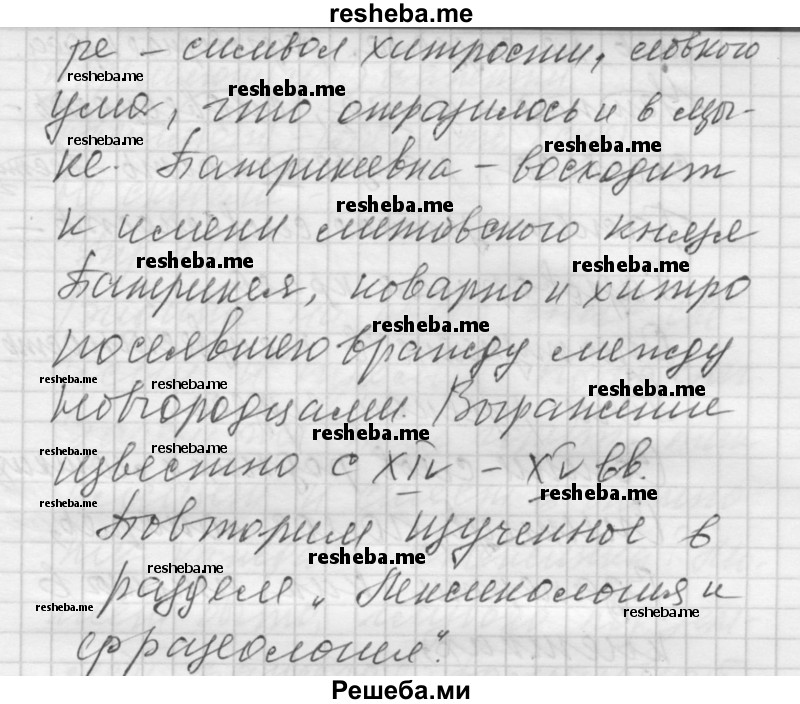 resheba.me
ре – символ хитрости, ловкого
resheba.me
resheba.me
ума, что отразилось и в язы-
resheba.me
resheba.me
ке. Патрикеевна – восходит
resheba.me
к имени литовского князя
resheba.me
resheba.me
Патрикея, коварно и хитро
resheba.me
посеявшего вражду между
resheba.me
resheba.me
resheba.me
новгородцами. Выражение
resheba.me
resheba.me
resheba.me
известно с XIV – XV вв.
resheba.me
resheba.me
Повторим изученное в
resheba.me
resheba.me
разделе „Лексикология и
resheba.me
resheba.me
фразеология“.
Решеба.ми